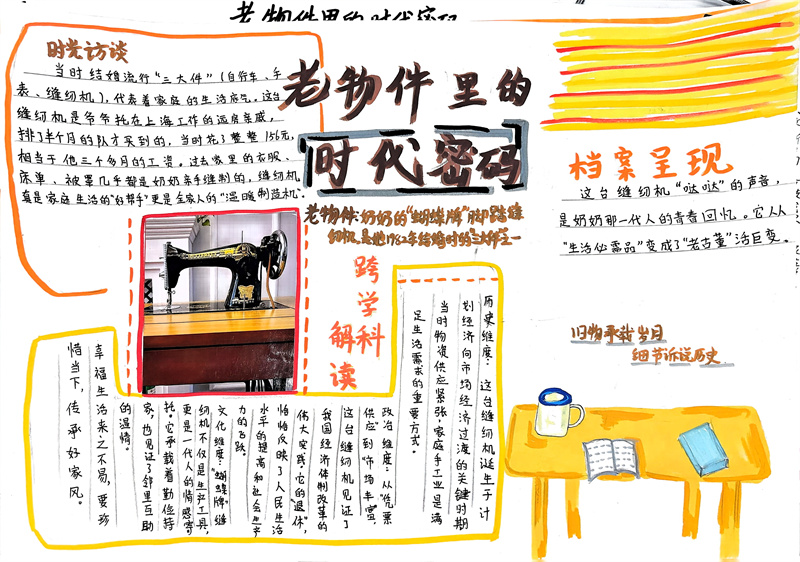 老物件里的时代密码
时光访谈
当时结婚流行“三大件”(自行车、手
表、缝纫机),代表着家庭的生活底气,这台
缝纫机是爷爷托在上海工作的远房亲戚,
排了半个月的队才买到的,当时花了整整156元,
相当于他三个多月的工资,过去家里的衣服、
床单、被罩几乎都是奶奶亲手缝制的,缝纫机
真是家庭生活的“好帮手”更是全家人的“温暖制造机”。
老物件里的
时代密码
老物件:奶奶的“蝴蝶牌”脚踏缝
纫机,是她1982年结婚时的“三大件”之一
档案呈现
这台缝纫机“哒哒”的声音,
是奶奶那一代人的青春回忆。它从
“生活必需品”变成了“老古董”活巨变。
跨学科
解读
历史维度:这台缝纫机诞生于计
划经济向市场经济过渡的关键时期
当时物资供应紧张,家庭手工业是满
足生活需求的重要方式。
政治维度:从“凭票
供应”到“市场丰富”,
这台缝纫机见证了
我国经济体制改革的
伟大实践,它的“退休”,
恰恰反映了人民生活
水平的提高和社会生产
力的飞跃。
文化维度:“蝴蝶牌”缝
纫机不仅是生产工具,
更是一代人的情感寄
托。它承载着勤俭持
家,也见证了邻里互助
的温情。
幸福生活来之不易,要珍
惜当下,传承好家风。
旧物承载岁月
细节诉说历史